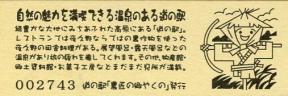 自然の魅力を満喫できる温泉のある道の駅
緑豊かな大地にみちあふれた高原にある「道の駅」。
レストランでは母々野ならではの農作物を使った
母々野の田舎料理がある。展望風呂・露天風呂などの
温泉があり旅の疲れを癒してくれます。その他、物産館・
郷土資料館・お菓子工房などまだまだ見所が満載。
002743 道の駅「農匠の郷やくの」発行